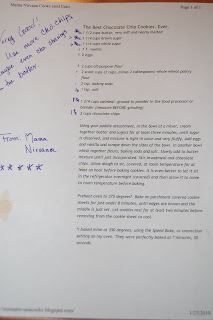 Mama Nirvana Cookie
Page 1 of 1
Very Good!
Use more choc chips
maybe even
to be
better.
The Best Chocolate Chip Cookies, Ever.
1/2 cups butter, very soft and nearly melted
3/4 cups brown sugar
1/2 cups white sugar
1 T. vanilla
2 eggs
2 cups all-purpose flour
1 scant cups (1 cups, minus 2 tablespoons) whole wheat pastry
flour
1 tsp. baking soda
1 tsp. salt
3/4 cups oatmeal, ground to powder in the food processor or
blender (measure BEFORE grinding).
3 cups chocolate chips
From: Mama
Nirvana
★★★★★
Using your paddle attachment, in the bowl of a mixer, cream
together butter and sugars for at least three minutes, until sugar
is dissolved, and mixture is light in color and very fluffy. Add eggs
and vanilla and scrape down the sides of the bowl. In another bowl
whisk together flours, baking soda and salt. Slowly add to butter
mixture until just incorporated. Stir in oatmeal and chocolate
chips. Allow dough to sit, covered, at room temperature for at
least an hour before baking cookies. It is even better to let it sit
in the refrigerator overnight (covered) and then allow it to come
to room temperature before baking.
Preheat oven to 375 degrees. Bake on parchment covered cookie
sheets for just under 8 minutes, until edges are brown and the
middle is just set. Let cookies rest for at least two minutes before
removing from the cookie sheet to cool.
*I baked mine at 350 degrees, using the Speed Bake, or convection
setting on my oven. They were perfectly baked at 7 minutes, 30
seconds.